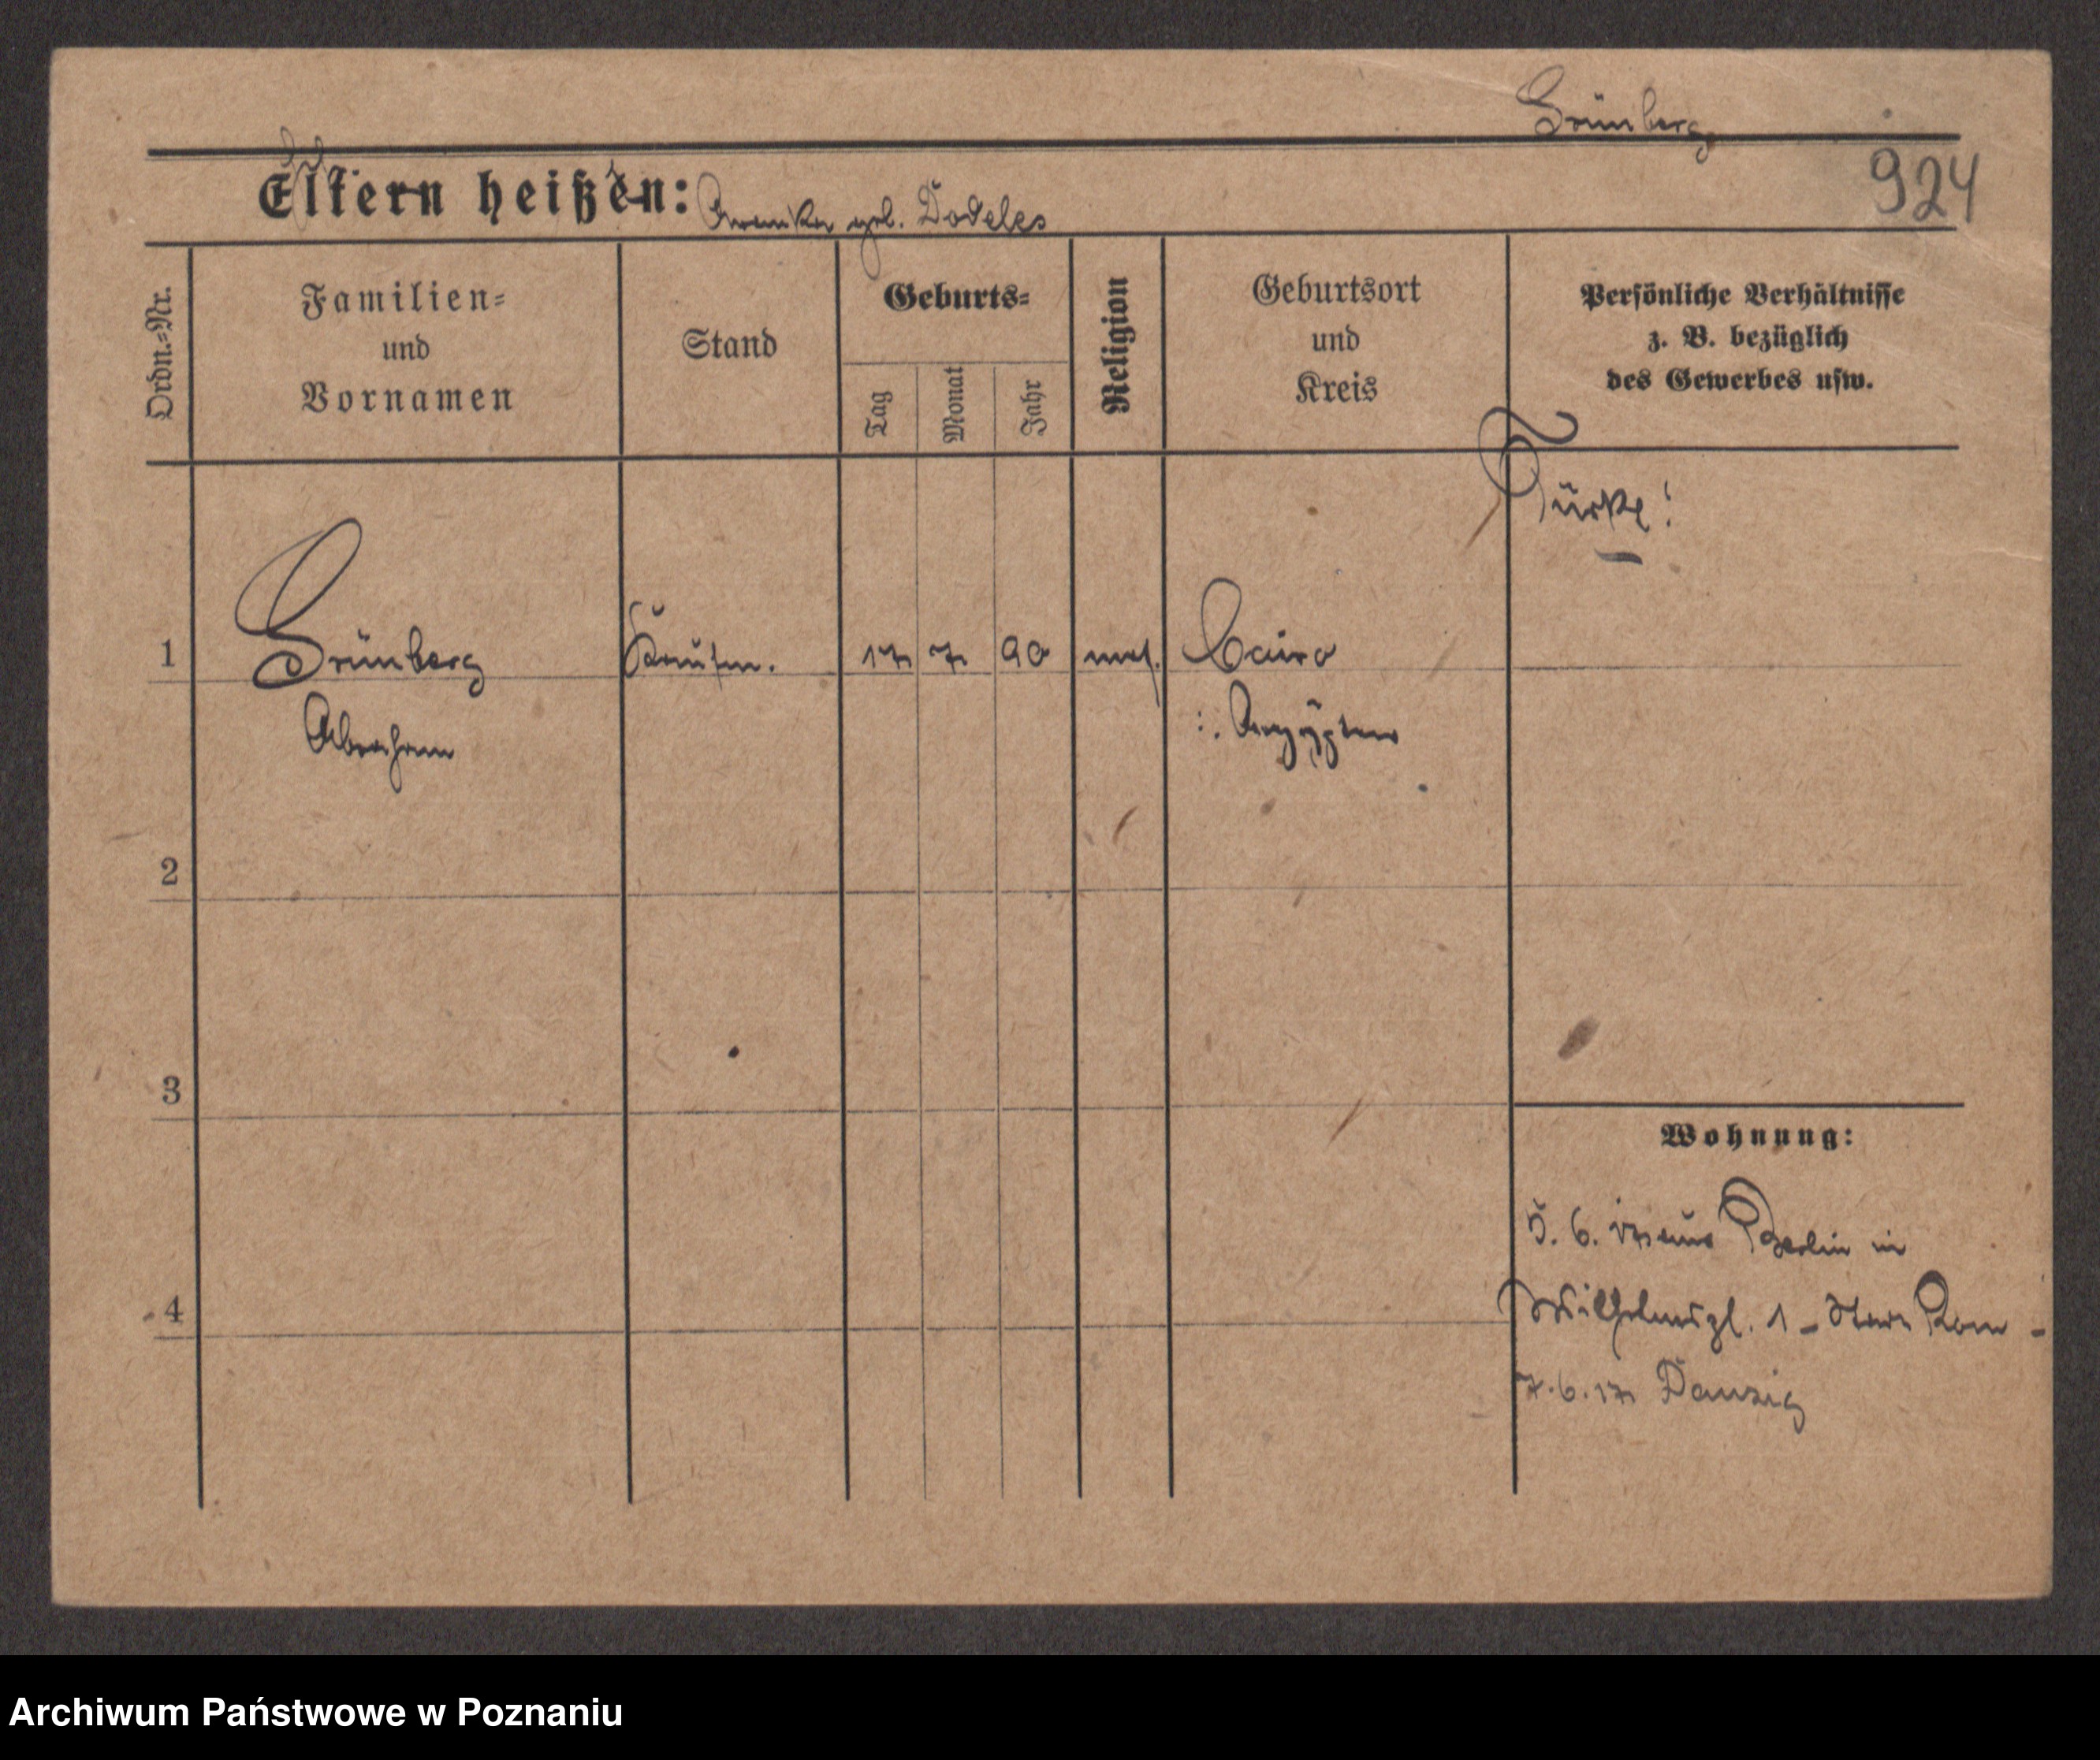 Grünberg
924
Eltern heißen: geb. Dodeles
Ordn.=Nr.
Familien=
und
Vornamen
Stand
Geburts=
Tag
Monat
Jahr
Religion
Geburtsort
und
Kreis
Persönliche Verhältnisse
z. B. bezüglich
des Gewerbes usw.
Türke!
1 Grünberg Kaufm. 17 7 90 mos. Cairo
Abraham : Aegypten
2
3
4
Wohnung:
5. 6. 17 aus Berlin in
Wilhelmspl. 1 -
7. 6. 17 Danzig
Archiwum Państwowe w Poznaniu